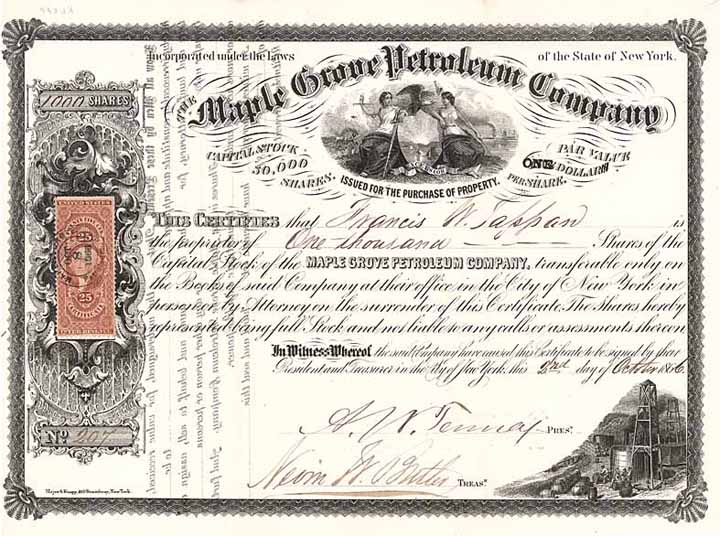 Incorporated under the Laws of the State of New York.
1000 SHARES
THE
Maple Grove Petroleum Company
CAPITAL STOCK
50,000
SHARES.
PAR VALUE
ONE DOLLAR
PER SHARE.
EXCELSIOR
ISSUED FOR THE PURCHASE OF PROPERTY.
This Certifies that Francis W. Tappan is
the proprietor of One thousand Shares of the
Capital Stock of the MAPLE GROVE PETROLEUM COMPANY, transferable only on
the Books of said Company at their office in the City of New York in
person or by Attorney on the surrender of this Certificate. The shares hereby
represented being full Stock and not liable to any calls or assessments thereon
In Witness Whereof the said Company have caused this Certificate to be signed by their
President and Treasurer in the City of New York, this 2nd day of October 1866.
25 25
25
CERTIFICATE
INTER. REVENUE
No. 207
A. W. Tenney PRES.
W. Butler TREAS.
Major & Knapp, 449 Broadway, New York.